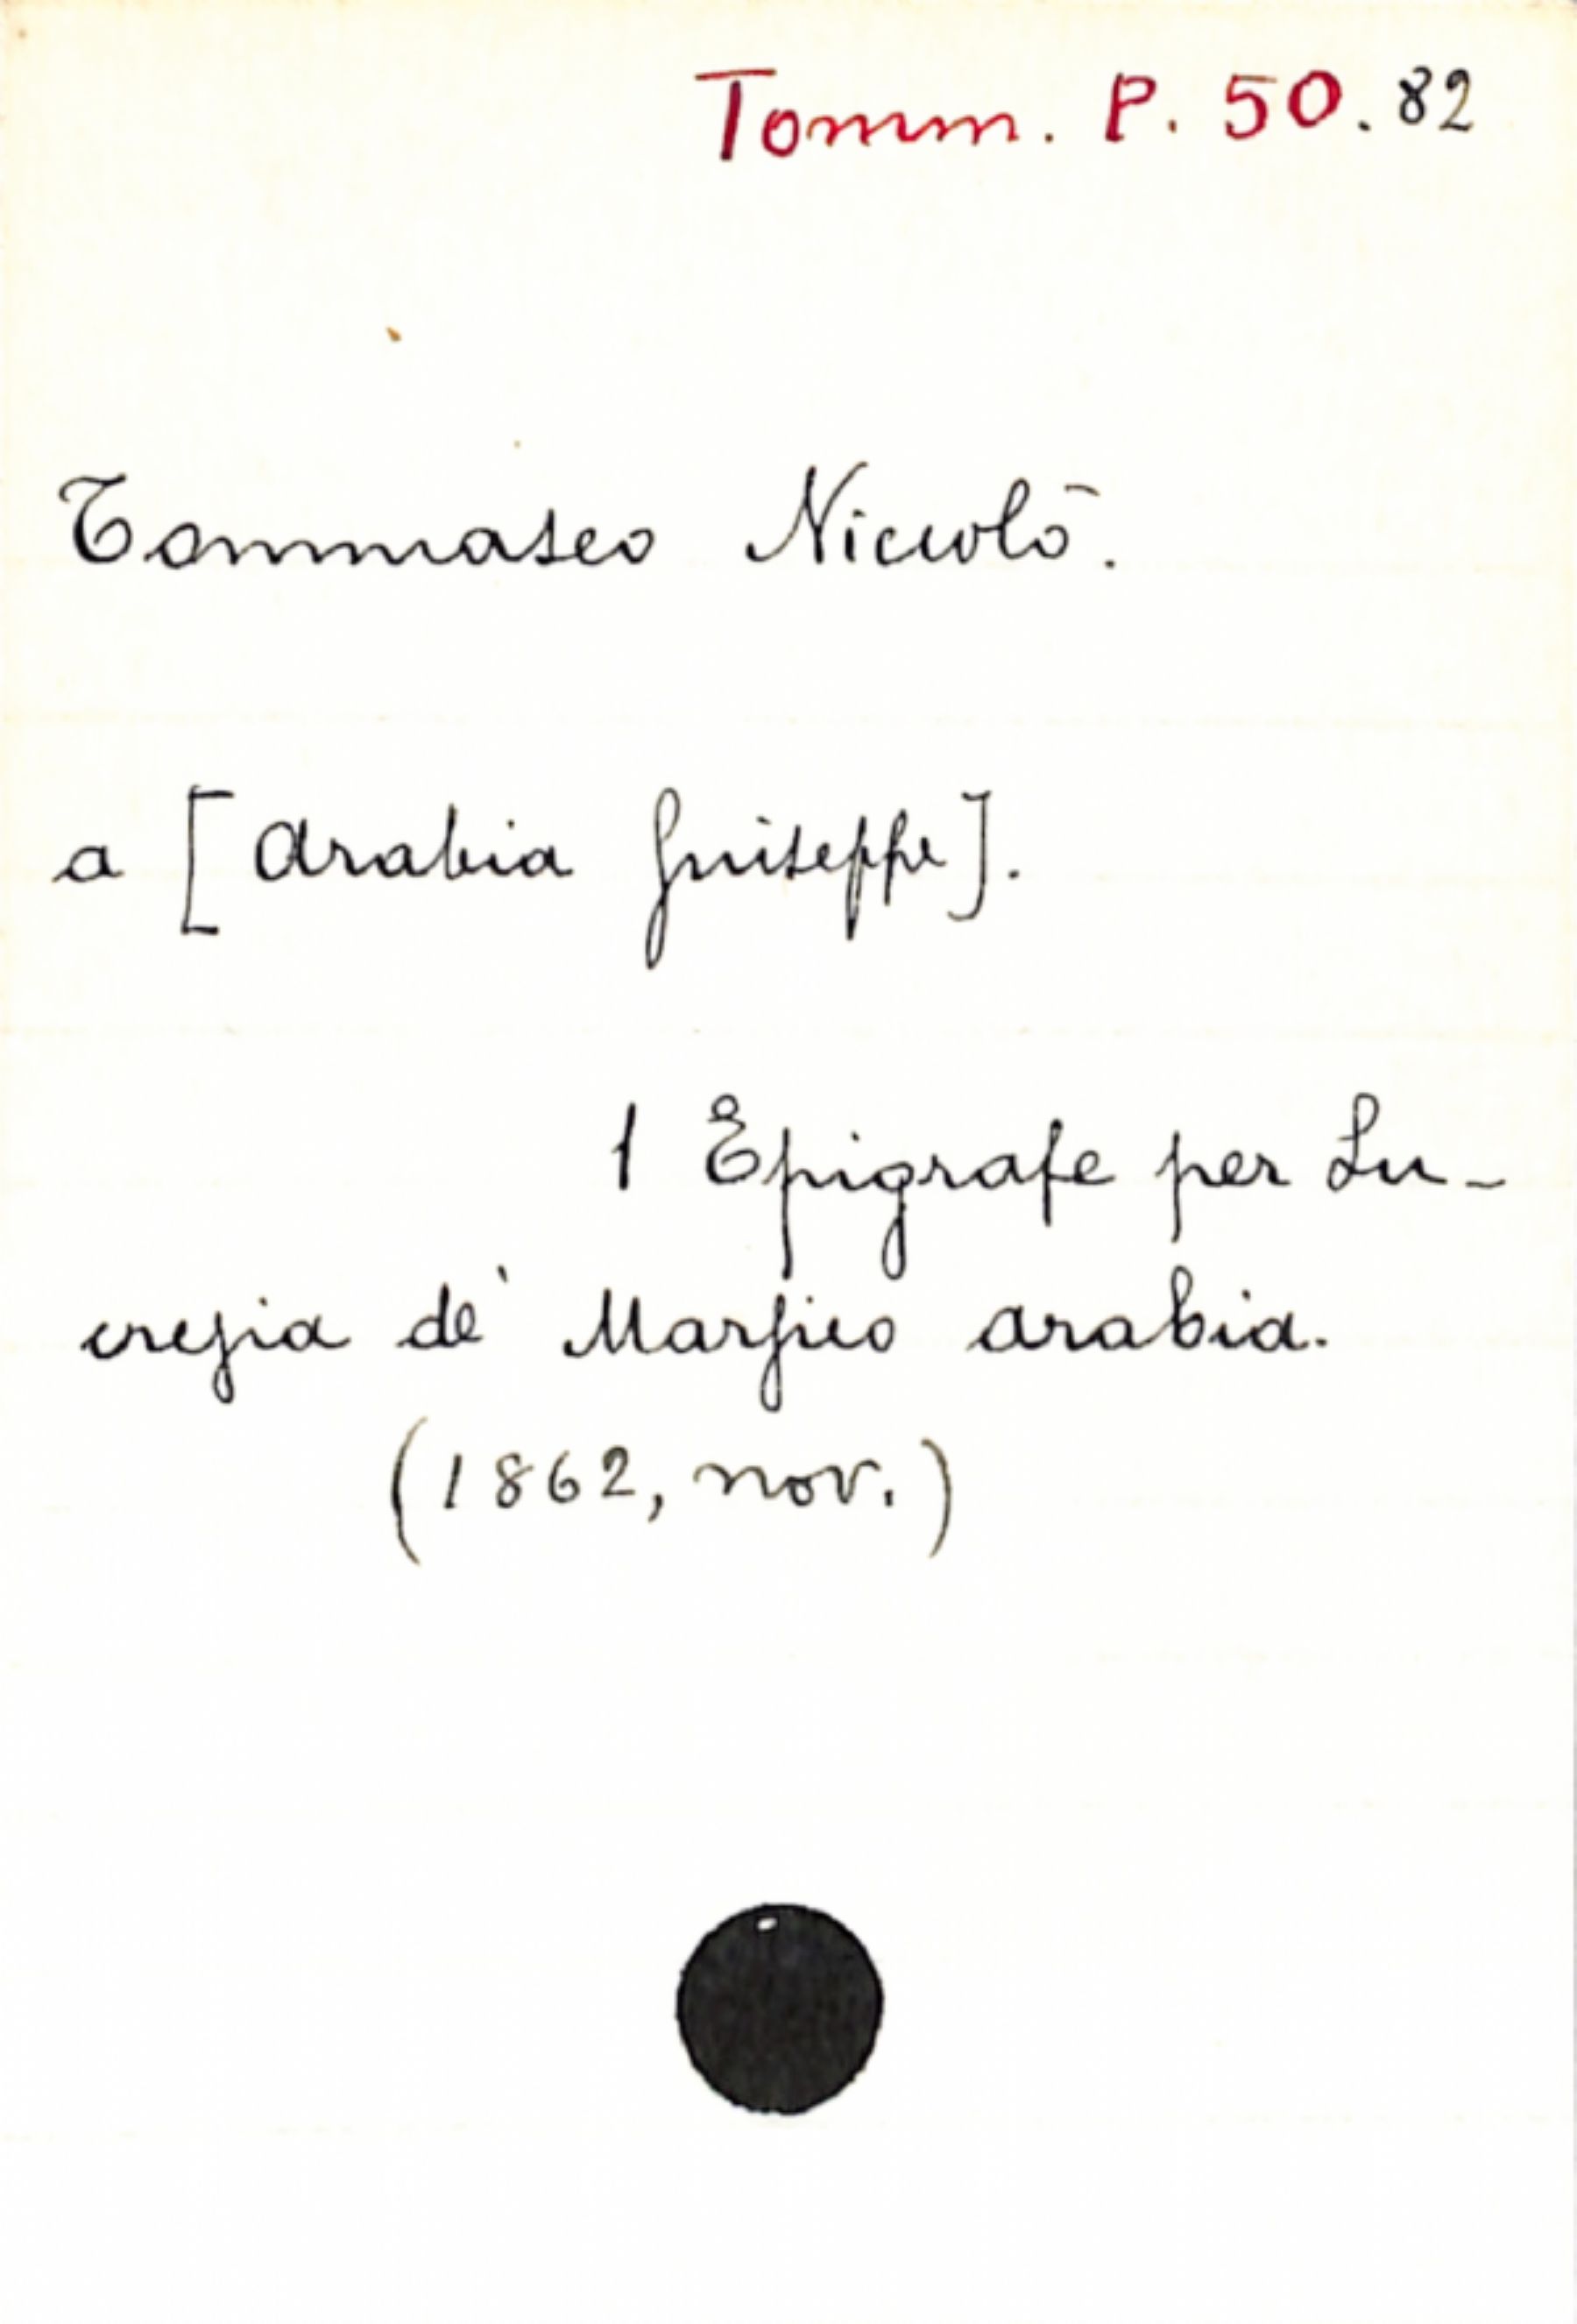 Tomm. P. 50. 82
Tommaseo Niccolò.
a [Arabia Giuseppe].
1 Epigrafe per Lu-
crezia de' Marzico Arabia.
(1862, nov.)